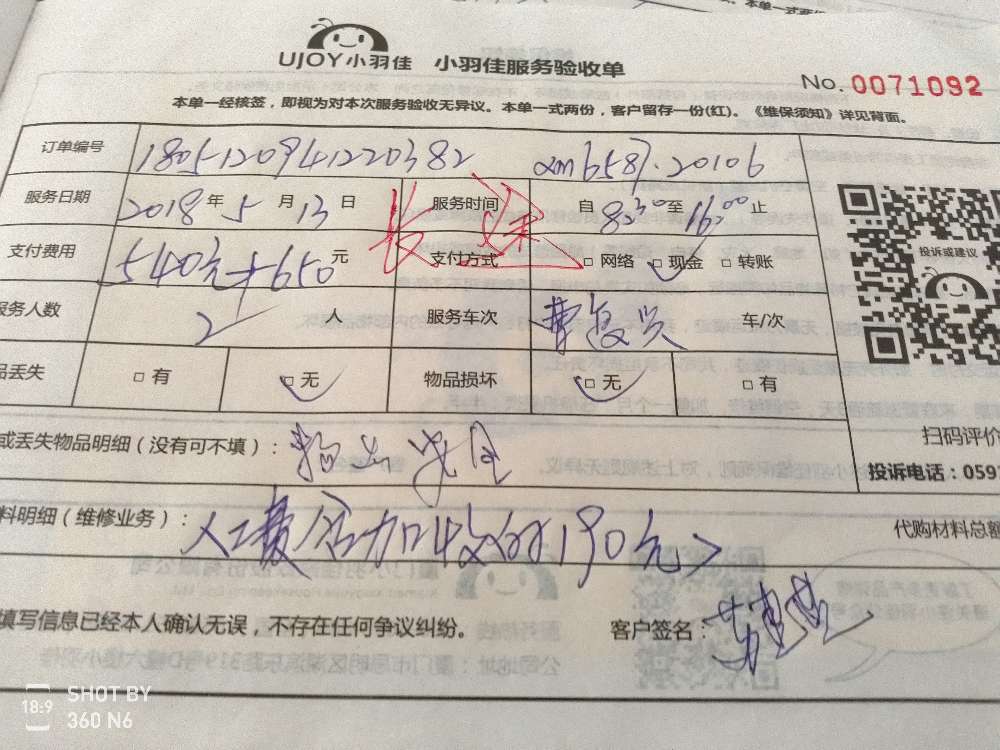 UJOY小羽佳 小羽佳服务验收单
No. 0071092
本单一经核签，即视为对本次服务验收无异议。本单一式两份，客户留存一份(红)。《维保须知》详见背面。
订单编号 1805120941220382 xm6587.20106
服务日期 2018年5月13日 服务时间 自8:30至16:00止
长途
支付费用 540元+650元 支付方式 □网络 □现金 □转账
投诉或建议
服务人数 2人 服务车次 车/次
品丢失 □有 □无 物品损坏 □无 □有
扫码评价
或丢失物品明细（没有可不填）：
投诉电话：059
料明细（维修业务）：人工费含加收的190元
代购材料总额
填写信息已经本人确认无误，不存在任何争议纠纷。 客户签名：
18:9 SHOT BY
360 N6